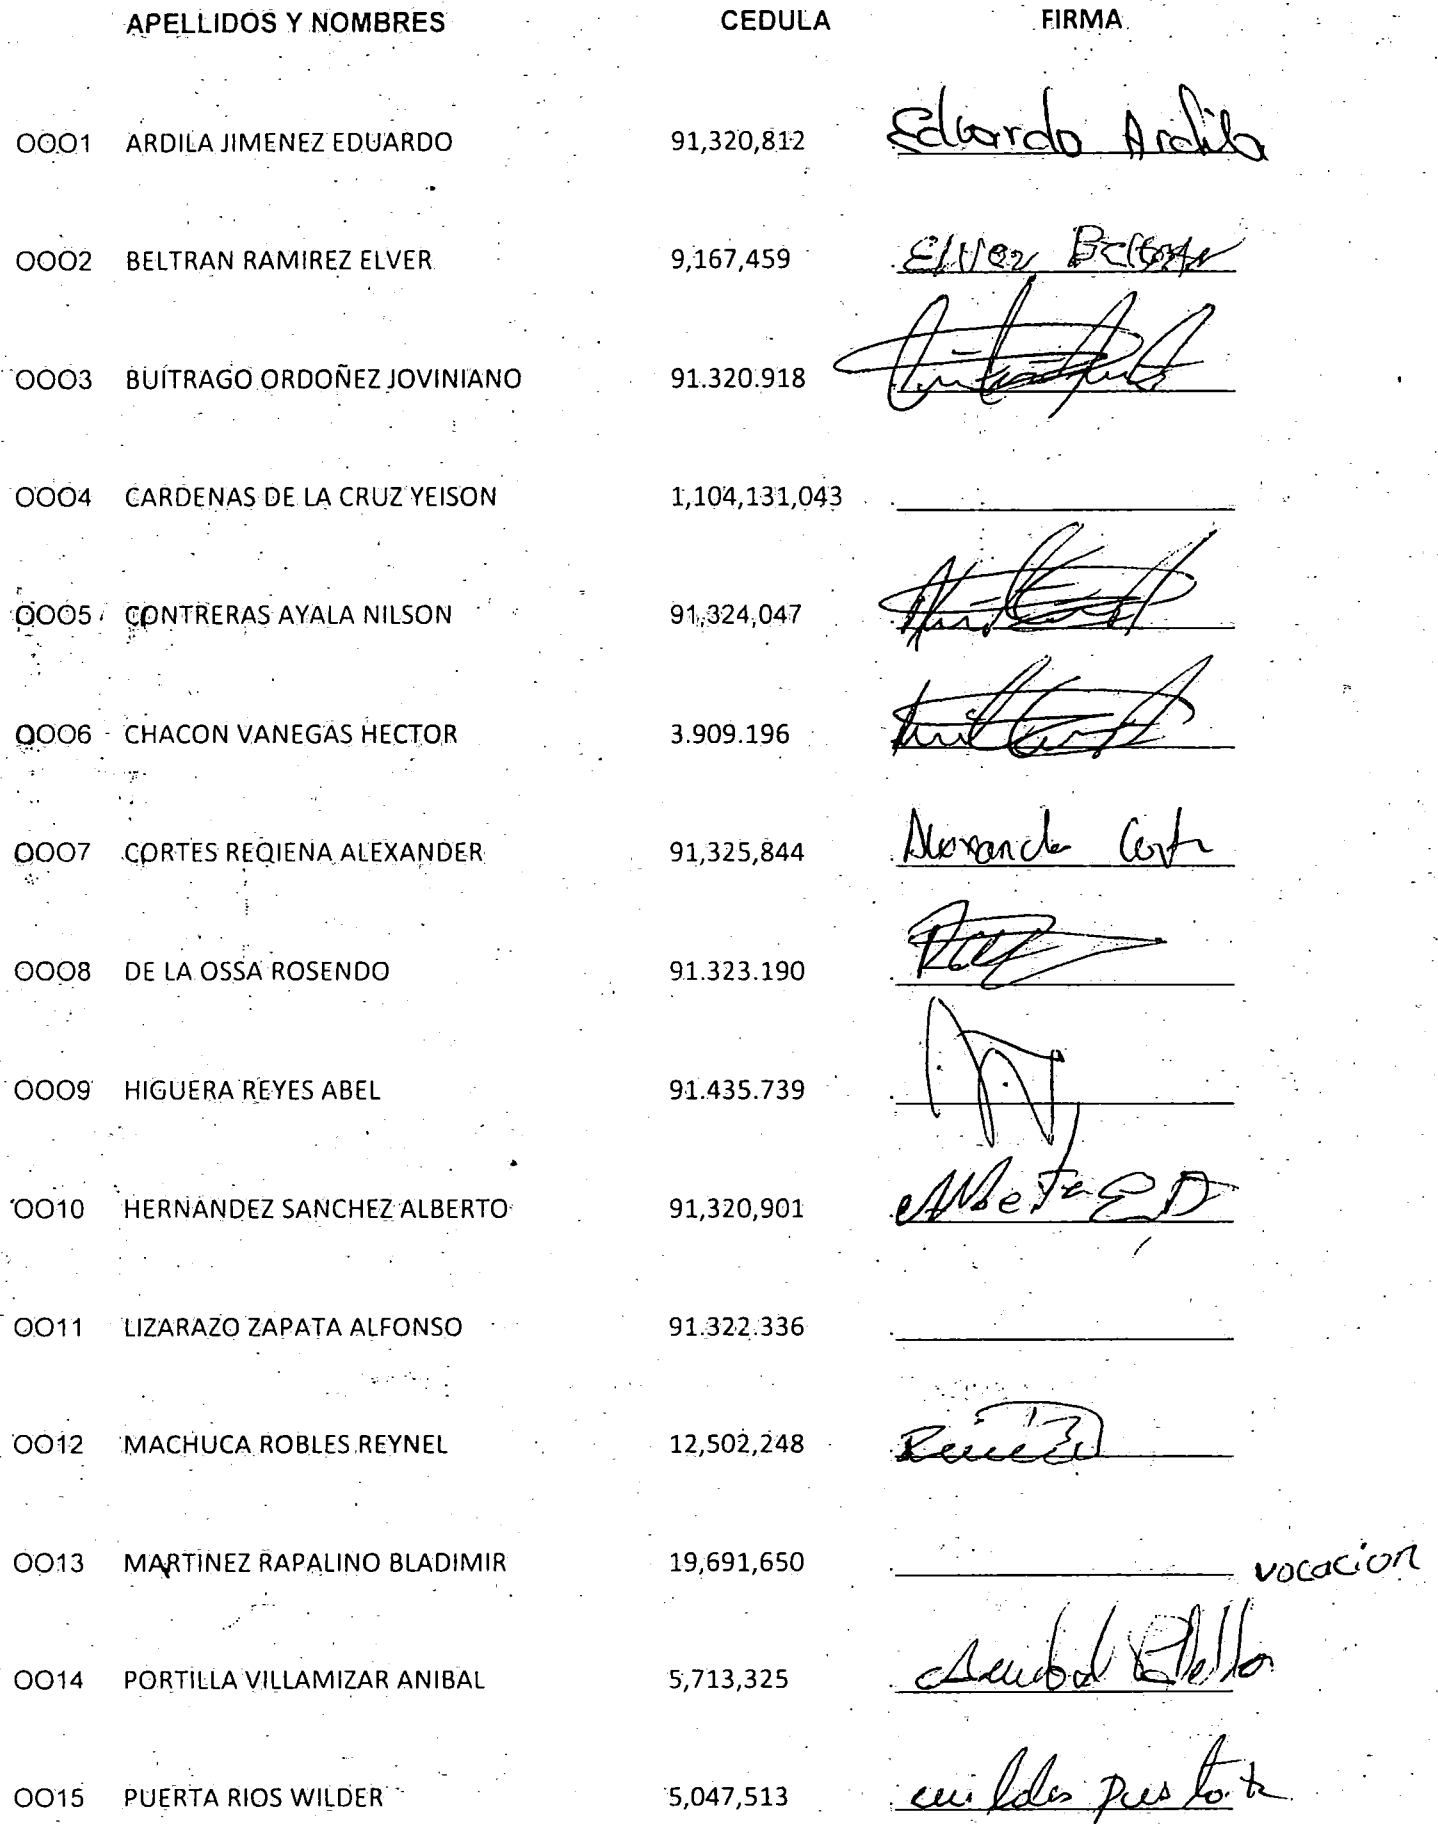 APELLIDOS Y NOMBRES CEDULA FIRMA
0001 ARDILA JIMENEZ EDUARDO 91,320,812 Eduardo Ardila
0002 BELTRAN RAMIREZ ELVER 9,167,459 Elver Beltran
0003 BUITRAGO ORDOÑEZ JOVINIANO 91.320.918
0004 CARDENAS DE LA CRUZ YEISON 1,104,131,043
0005 CONTRERAS AYALA NILSON 91,324,047
0006 CHACON VANEGAS HECTOR 3.909.196
0007 CORTES REQIENA ALEXANDER 91,325,844
0008 DE LA OSSA ROSENDO 91.323.190
0009 HIGUERA REYES ABEL 91.435.739
0010 HERNANDEZ SANCHEZ ALBERTO 91,320,901
0011 LIZARAZO ZAPATA ALFONSO 91.322.336
0012 MACHUCA ROBLES REYNEL 12,502,248
0013 MARTINEZ RAPALINO BLADIMIR 19,691,650 vocacion
0014 PORTILLA VILLAMIZAR ANIBAL 5,713,325
0015 PUERTA RIOS WILDER 5,047,513